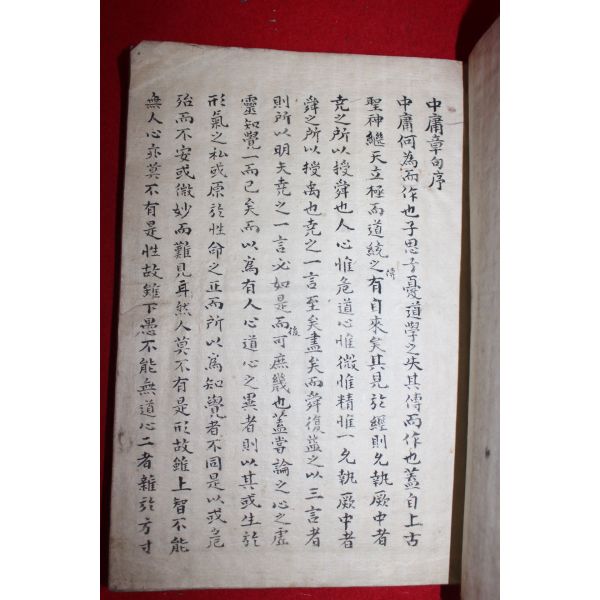 中庸章句序
中庸何為而作也子思子憂道學之失其傳而作也蓋自上古
聖神繼天立極而道統之傳有自來矣其見於經則允執厥中者
堯之所以授舜也人心惟危道心惟微惟精惟一允執厥中者
舜之所以授禹也堯之一言至矣盡矣而舜復益之以三言者
則所以明夫堯之一言必如是而後可庶幾也蓋嘗論之心之虛
靈知覺一而已矣而以爲有人心道心之異者則以其或生於
形氣之私或原於性命之正而所以爲知覺者不同是以或危
殆而不安或微妙而難見耳然人莫不有是形故雖上智不能
無人心亦莫不有是性故雖下愚不能無道心二者雜於方寸